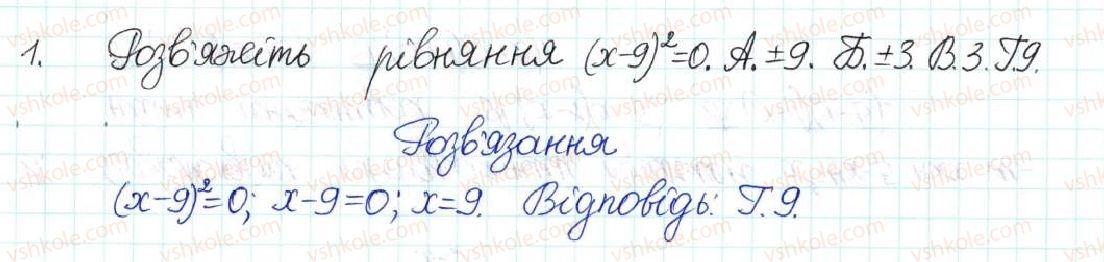 1. Розв'яжіть рівняння (x-9)²=0. А. ±9. Б. ±3. В. 3. Г. 9.
Розв'язання
(x-9)²=0; x-9=0; x=9. Відповідь: Г. 9.